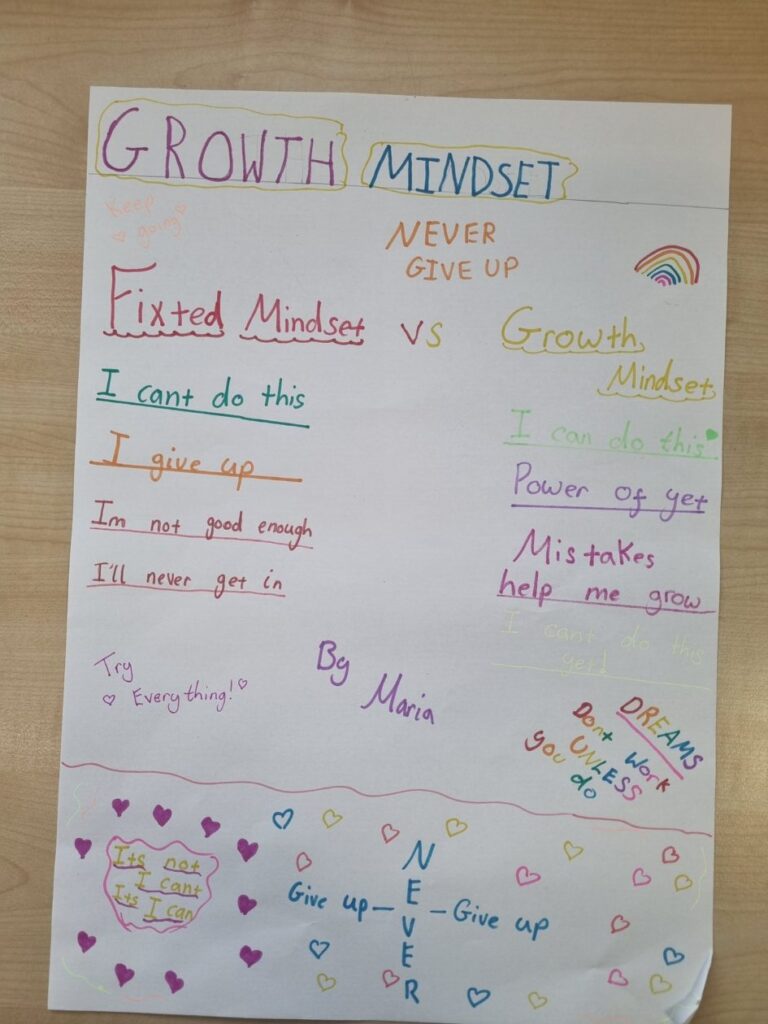 GROWTH MINDSET
Keep
going
NEVER
GIVE UP
Fixted Mindset vs Growth
Mindset
I cant do this
I give up
Im not good enough
I'll never get in
I can do this
Power of yet
Mistakes
help me grow
I cant do this
yet!
Try
Everything!
By
Maria
DREAMS
Dont work
UNLESS
you do
Its not
I cant
Its I can
NEVER
Give up – – Give up